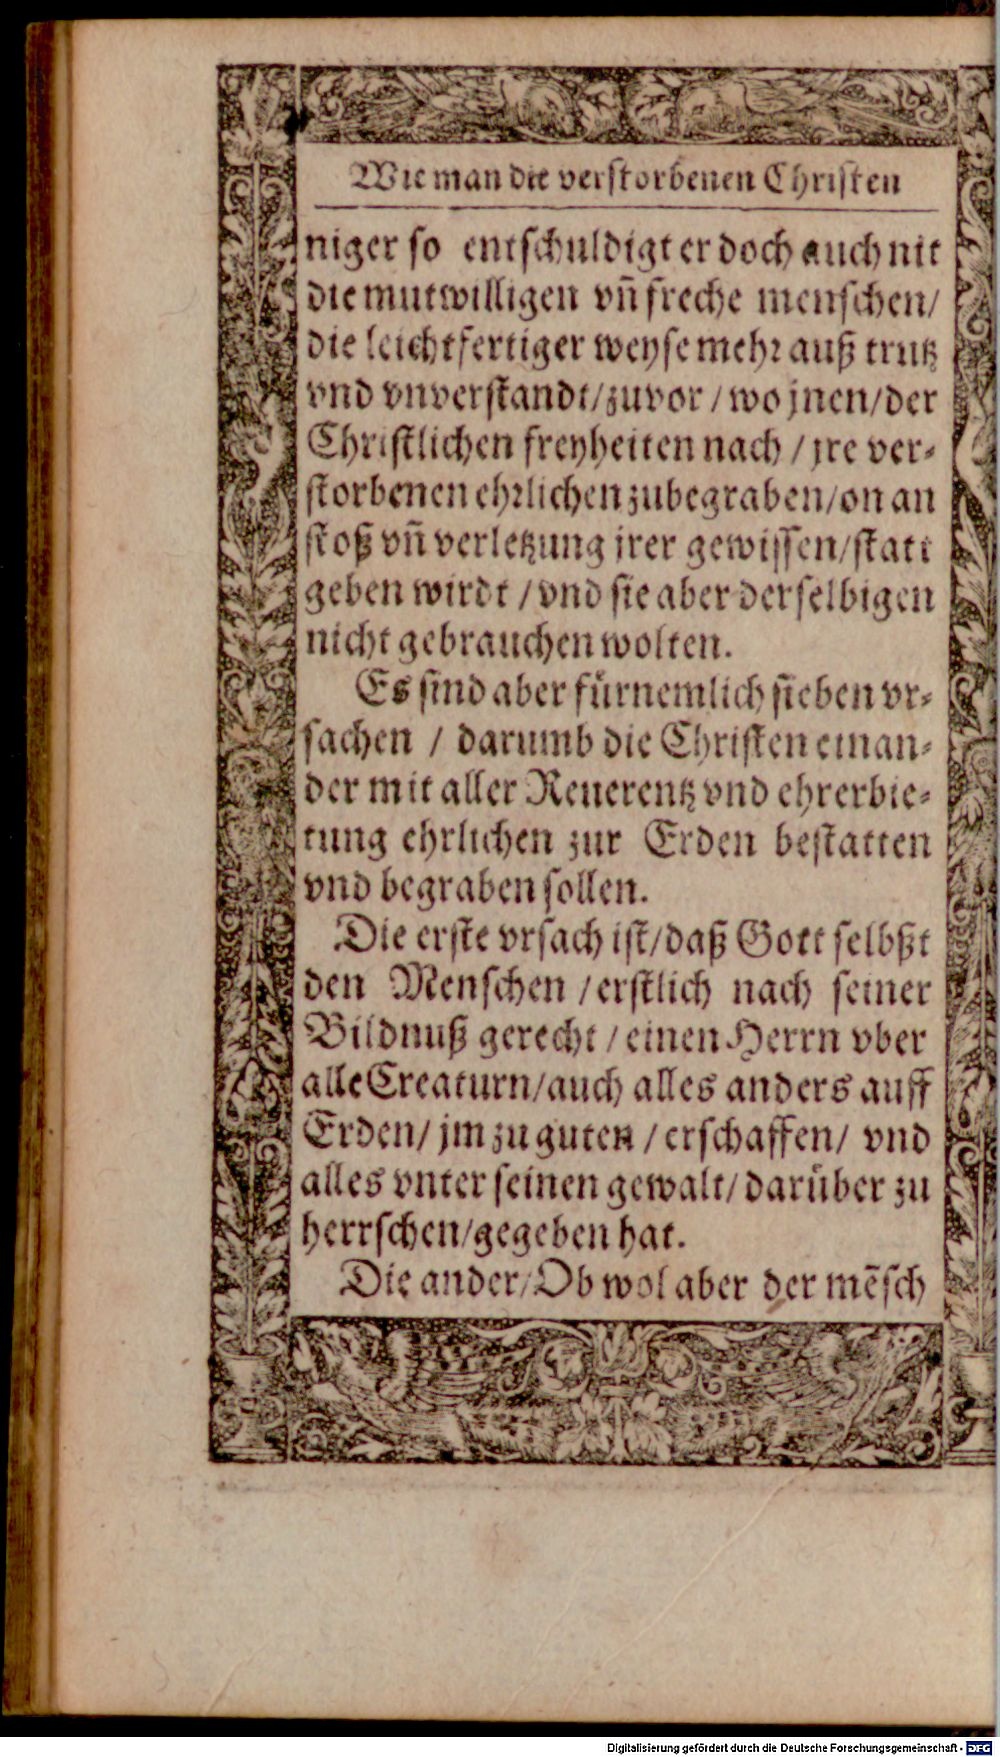 Wie man die verstorbenen Christen
niger so entschuldigt er doch auch nit
die mutwilligen vñ freche menschen/
die leichtfertiger weyse mehr auß trutz
vnd vnverstandt/zuvor/wo jnen/der
Christlichen freyheiten nach/jre ver-
storbenen ehrlichen zubegraben/on an
stoß vñ verletzung jrer gewissen/statt
geben wirdt/vnd sie aber derselbigen
nicht gebrauchen wolten.
Es sind aber fürnemlich sieben vr-
sachen / darumb die Christen einan-
der mit aller Reuerentz vnd ehrerbie-
tung ehrlichen zur Erden bestatten
vnd begraben sollen.
Die erste vrsach ist/daß Gott selbßt
den Menschen /erstlich nach seiner
Bildnuß gerecht/einen Herrn vber
alle Creaturn/auch alles anders auff
Erden/ jm zu guten /erschaffen/ vnd
alles vnter seinen gewalt/darüber zu
herrschen/gegeben hat.
Die ander/Ob wol aber der mẽsch
Digitalisierung gefördert durch die Deutsche Forschungsgemeinschaft - DFG